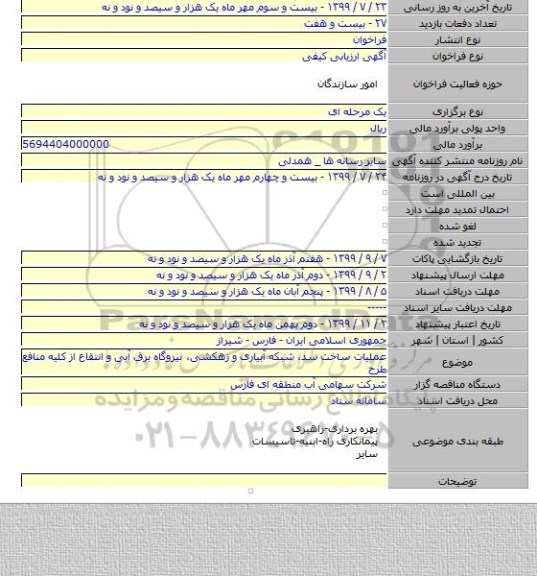 تاریخ آخرین به روز رسانی ۲۳ / ۷ / ۱۳۹۹ - بیست و سوم مهر ماه یک هزار و سیصد و نود و نه
تعداد دفعات بازدید ۲۷ - بیست و هفت
نوع انتشار فراخوان
نوع فراخوان آگهی ارزیابی کیفی
حوزه فعالیت فراخوان امور سازندگان
نوع برگزاری یک مرحله ای
واحد پولی برآورد مالی ریال
برآورد مالی 5694404000000
نام روزنامه منتشر کننده آگهی سایر رسانه ها _ همدلی
تاریخ درج آگهی در روزنامه ۲۴ / ۷ / ۱۳۹۹ - بیست و چهارم مهر ماه یک هزار و سیصد و نود و نه
بین المللی است
احتمال تمدید مهلت دارد
لغو شده
تجدید شده
تاریخ بازگشایی پاکات ۷ / ۹ / ۱۳۹۹ - هفتم آذر ماه یک هزار و سیصد و نود و نه
مهلت ارسال پیشنهاد ۲ / ۹ / ۱۳۹۹ - دوم آذر ماه یک هزار و سیصد و نود و نه
مهلت دریافت اسناد ۵ / ۸ / ۱۳۹۹ - پنجم آبان ماه یک هزار و سیصد و نود و نه
مهلت دریافت سایر اسناد -----
تاریخ اعتبار پیشنهاد ۲ / ۱۱ / ۱۳۹۹ - دوم بهمن ماه یک هزار و سیصد و نود و نه
کشور | استان | شهر جمهوری اسلامی ایران - فارس - شیراز
موضوع عملیات ساخت سد، شبکه آبیاری و زهکشی، نیروگاه برق آبی و انتفاع از کلیه منافع
طرح
دستگاه مناقصه گزار شرکت سهامی آب منطقه ای فارس
محل دریافت اسناد سامانه ستاد
طبقه بندی موضوعی بهره برداری-راهبری
پیمانکاری راه-ابنیه-تاسیسات
سایر
توضیحات
ParsNamadData